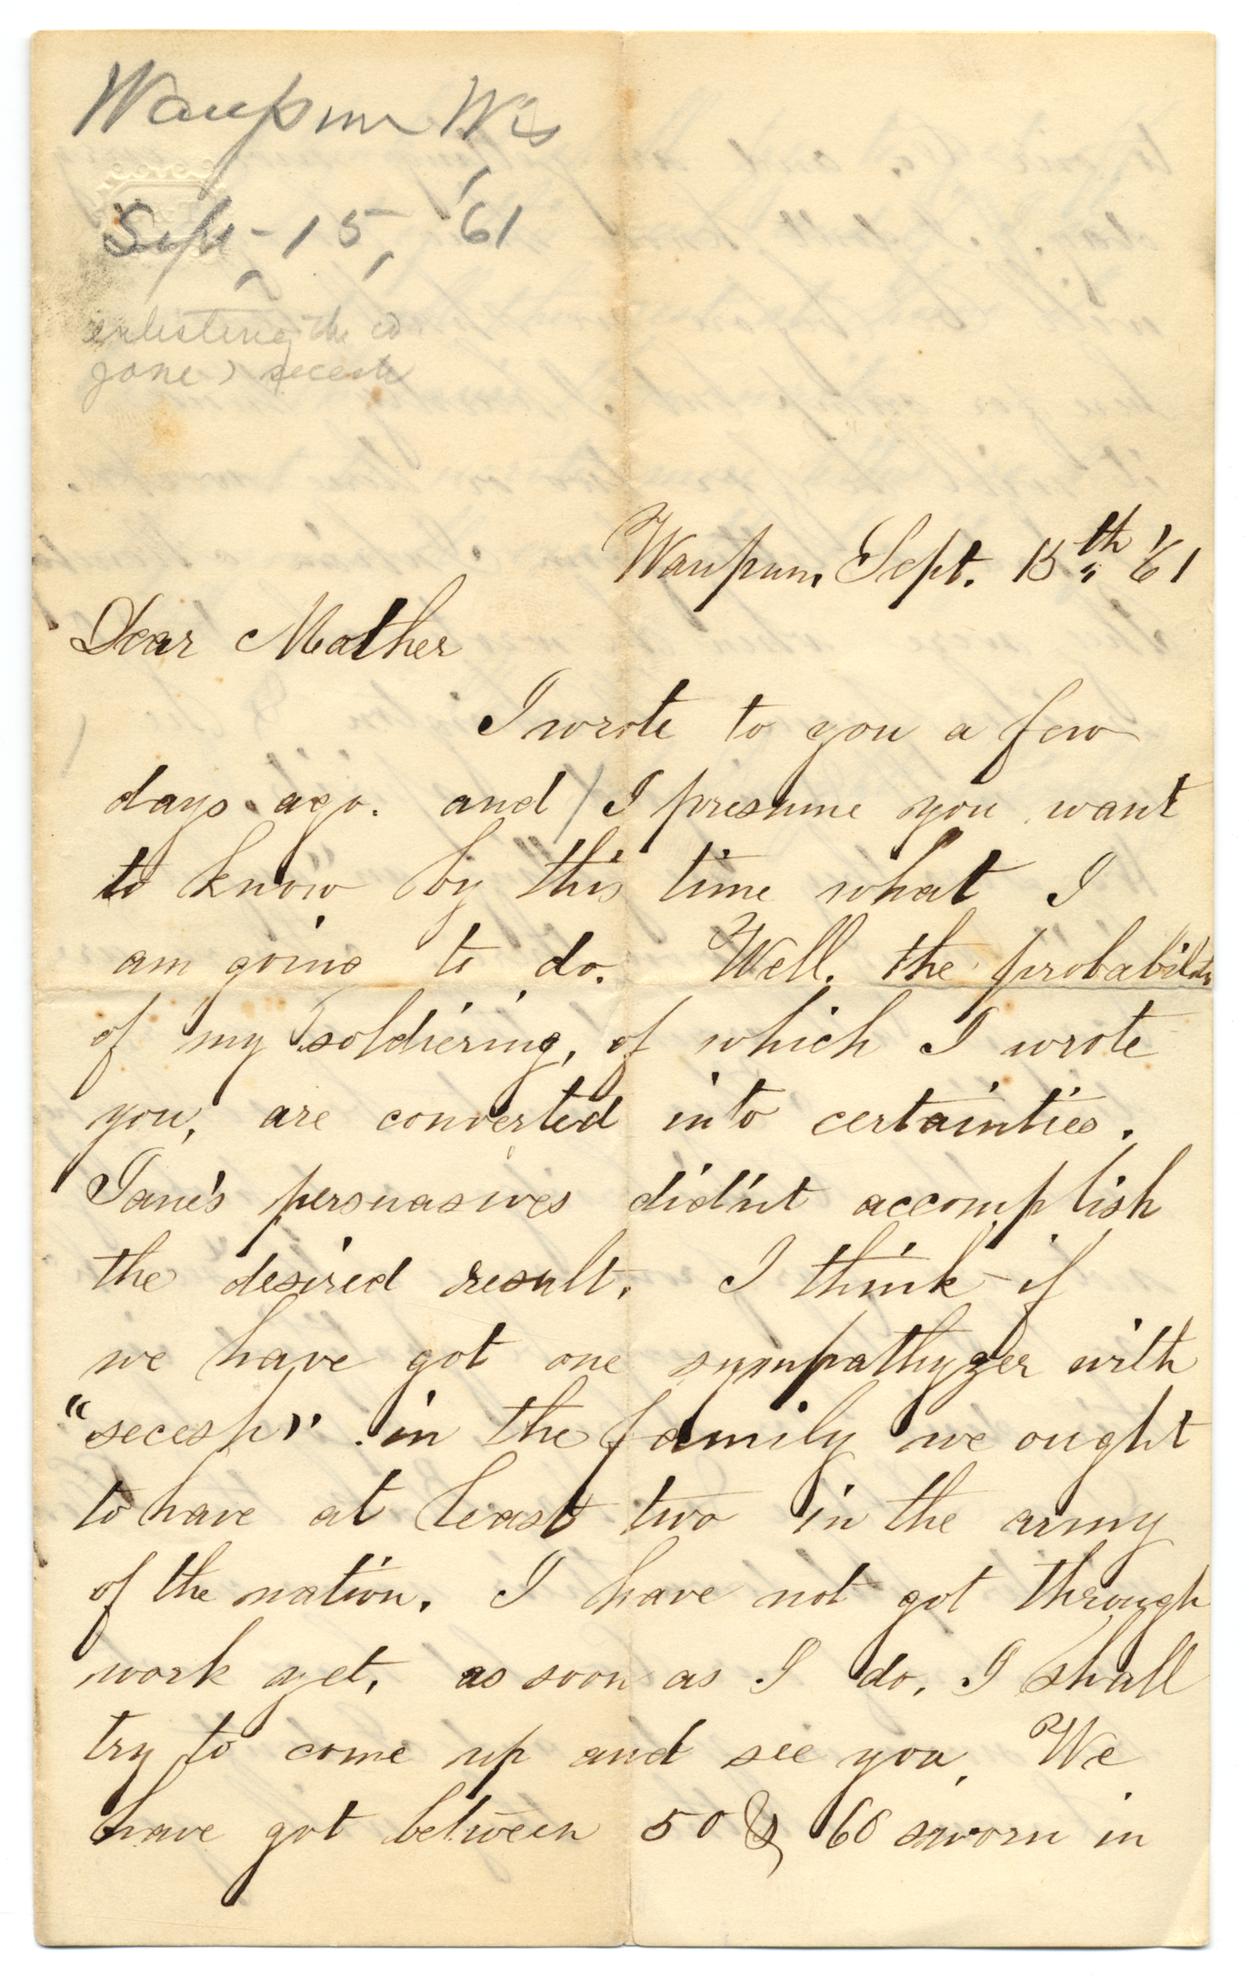 Waupun Wis
Sept - 15, '61
enlisting the co
Jane & secesh
Waupun, Sept. 15th '61
Dear Mother
I wrote to you a few
days ago. and I presume you want
to know by this time what I
am going to do. Well, the probabilities
of my soldiering, of which I wrote
you, are converted into certainties.
Jane's persuasives did'nt accomplish
the desired result. I think if
we have got one sympathyzer with
"secesh" in the family we ought
to have at least two in the army
of the nation. I have not got through
work yet, as soon as I do, I shall
try to come up and see you. We
have got between 50 & 60 sworn in